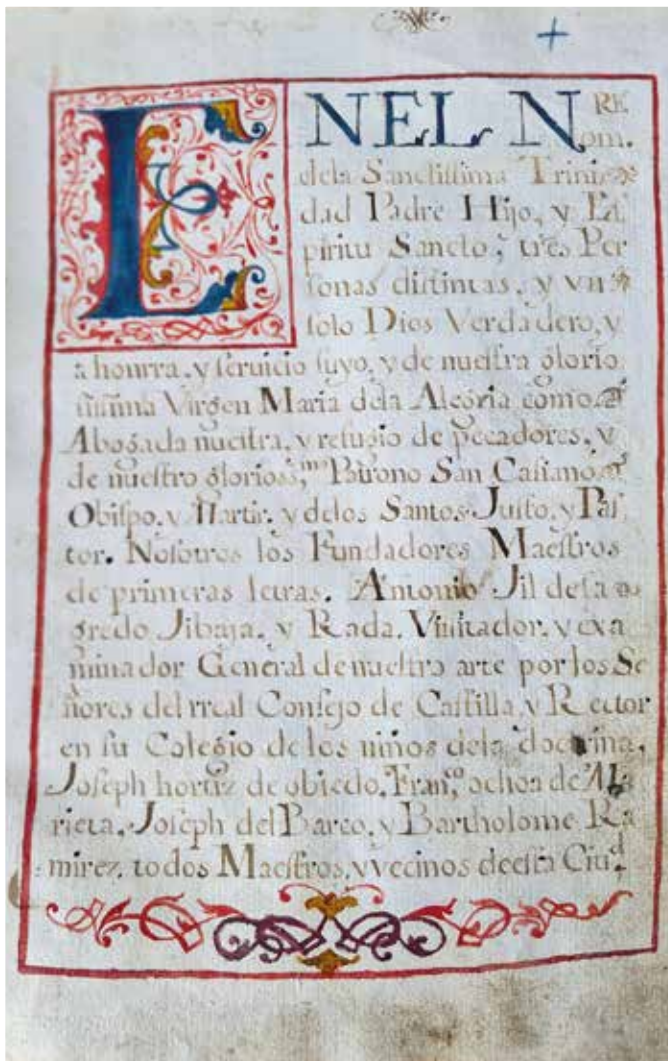 EN EL NOMRE
dela Sanctissima Trini
dad Padre Hijo, y Es
piritu Sancto, tres Per
sonas distintas, y vn
solo Dios Verdadero, y
a honrra, y seruicio suyo, y de nuestra glorio
sissima Virgen Maria dela Alegria como
Abogada nuestra, y refugio de pecadores, y
de nuestro glorioss.mo Patrono San Casiano
Obispo, y Martir, y delos Santos Justo, y Pas
tor. Nosotros los Fundadores Maestros
de primeras letras. Antonio Jil de sa
gredo Jibaja, y Rada, Visitador, y exa
minador General de nuestro arte por los Se
ñores del rreal Consejo de Castilla, y Rector
en su Colegio de los niños dela doctrina,
Joseph hortiz de obiedo, Fran.co ochoa de Ala
rieta, Joseph del Barco, y Bartholome Ra
mirez, todos Maestros, y vecinos de esta Ciu.d